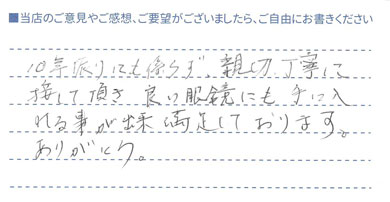 ■当店のご意見やご感想、ご要望がございましたら、ご自由にお書きください
10年振りにも係らず、親切、丁寧に
接して頂き 良い眼鏡にも 手に入
れる事が出来 満足しております。
ありがとう。